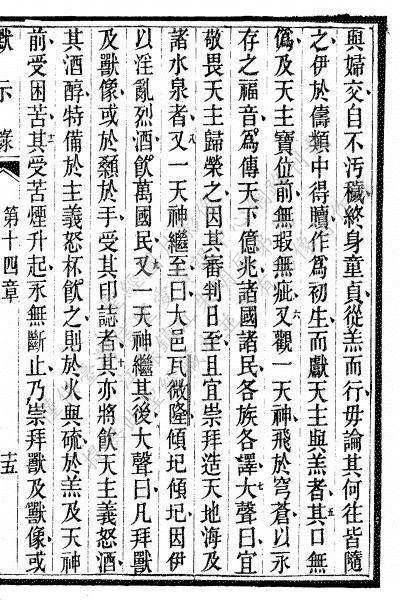 與婦交自不汚穢終身童貞從羔而行毋論其何徃皆隨
之伊於儔類中得贖作為初生而獻天主與羔者其口無
偽及天主寶位前無瑕無疵又觀一天神飛於穹蒼以永
存之福音為傳天下億兆諸國諸民各族各譯大聲曰宜
敬畏天主歸榮之因其審判日至且宜崇拜造天地海及
諸水泉者又一天神繼至曰大邑瓦微隆傾圮傾圮因伊
以淫亂烈酒飲萬國民又一天神繼其後大聲曰凡拜獸
及獸像或於顙於手受其印誌者其亦將飲天主義怒酒
其酒醇特備於主義怒杯飲之則於火與硫於羔及天神
前受困苦其受苦煙升起永無斷止乃崇拜獸及獸像或
示 第十四章 十五